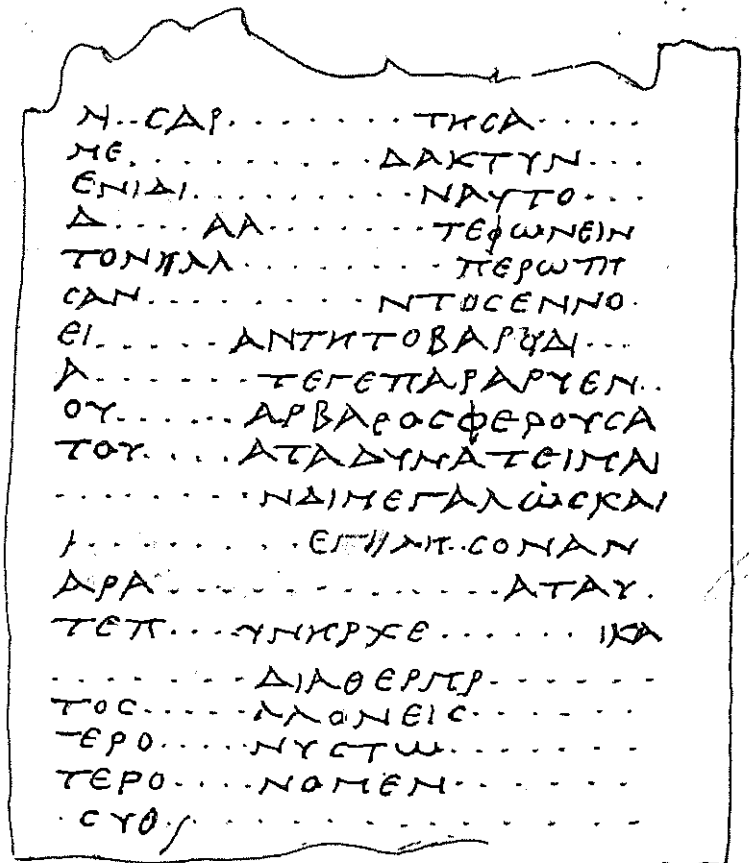 Ν..CΑΡ........ΤΗCΑ.....
ΜΕ..........ΔΑΚΤΥΛ...
ΕΝΙΔΙ.........ΝΑΥΤΟ...
Δ....ΑΑ.......ΤΕΦΩΝΕΙΝ
ΤΟΝ.........ΠΕΡΩΤΠ
CΑΝ..........ΝΤΟCΕΝΝΟ.
ΕΙ......ΑΝΤΗΤΟΒΑΡ...
Α.......ΤΕΓΕΠΑΡΑΡΥΕΝ..
ΟΥ......ΑΡΒΑΡΟCΦΕΡΟΥCΑ
ΤΟΥ....ΑΤΑΔΥΝΑΤΕΙΜΑΙ
.........ΝΔΙΜΕΓΑΛΩCΚΑΙ
.........CΟΝΑΝ
ΑΡΑ............ΑΤΑΥ.
ΤΕΠ....ΥΝΗΡΧΕ......ΙΚΑ
.........ΔΙΑΘΕΡΠΡ.......
ΤΟC.....ΛΛΟΝΕΙC.......
ΤΕΡΟ.....ΝΥCΤΩ........
ΤΕΡΟ....ΝΟΜΕΝ.......
.CΥΘ